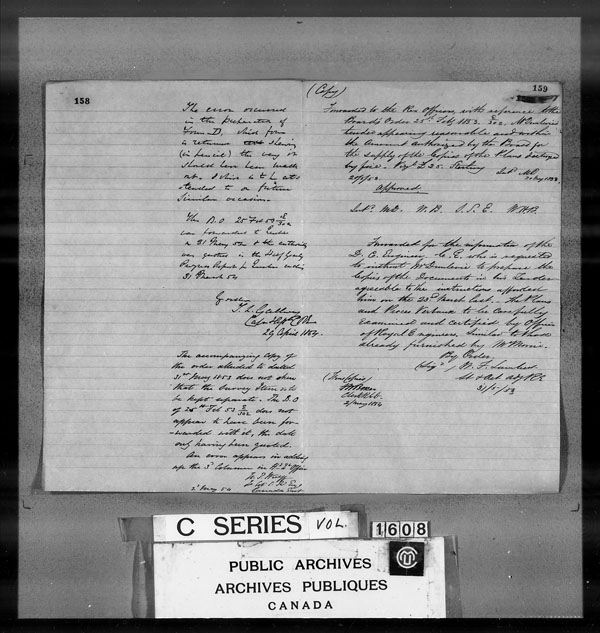 158
The error occurred
in the preparation of
Form D, which form
is returned showing
(in pencil) the way it
should have been made
out. I wish it to be
attended to on future
similar occasion.
The B.O. 25 Feb 53 E/302
was forwarded to Quebec
on 31 May 53 & the authority
was quoted in the Half Yearly
Progress Report for Quebec ending
31 March 54
Gore
T. L. Gallwey
Capt R.E.
29 April 1854
The accompanying copy of
the order alluded to dated
31st May 1853 does not shew
that the Survey Item is to
be kept separate. The B.O
of 25th Feb 53 E/302 does not
appear to have been for-
-warded with it, the date
only having been quoted.
An error appears in adding
up the 3d Column in
2d May 54
(Copy)
159
Forwarded to the Res Officers with reference to the
Board's Order 25th Feby 1853 E/302. Mr
tender appearing reasonable and within
the amount authorized by the Board for
the supply of the Copies of the Plans destroyed
by fire. £ 25. Sterling
approved
W. B. O. S. E. W.H.B.
Forwarded for the information of the
D. C. Engineer C. E. who is requested
to instruct Mr to prepare the
Copies of the Documents in his Tender
agreeable to the instructions afforded
him on the 23rd March last. The Plans
and Proces Verbaux to be carefully
examined and certified by Officers
of Royal Engineers similar to those
already furnished by Mr
By Order
(True Copies)
2/May 1854
31/5/53
C SERIES VOL. 1608
PUBLIC ARCHIVES
ARCHIVES PUBLIQUES
CANADA